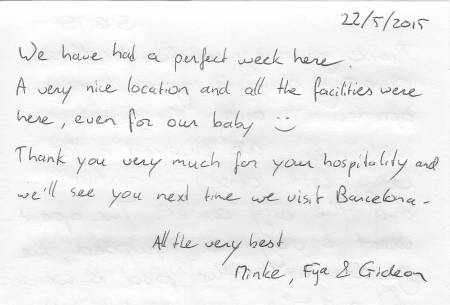 22/5/2015
We have had a perfect week here.
A very nice location and all the facilities were
here, even for our baby :)
Thank you very much for your hospitality and
we'll see you next time we visit Barcelona.
All the very best
Minke, Fija & Gideon